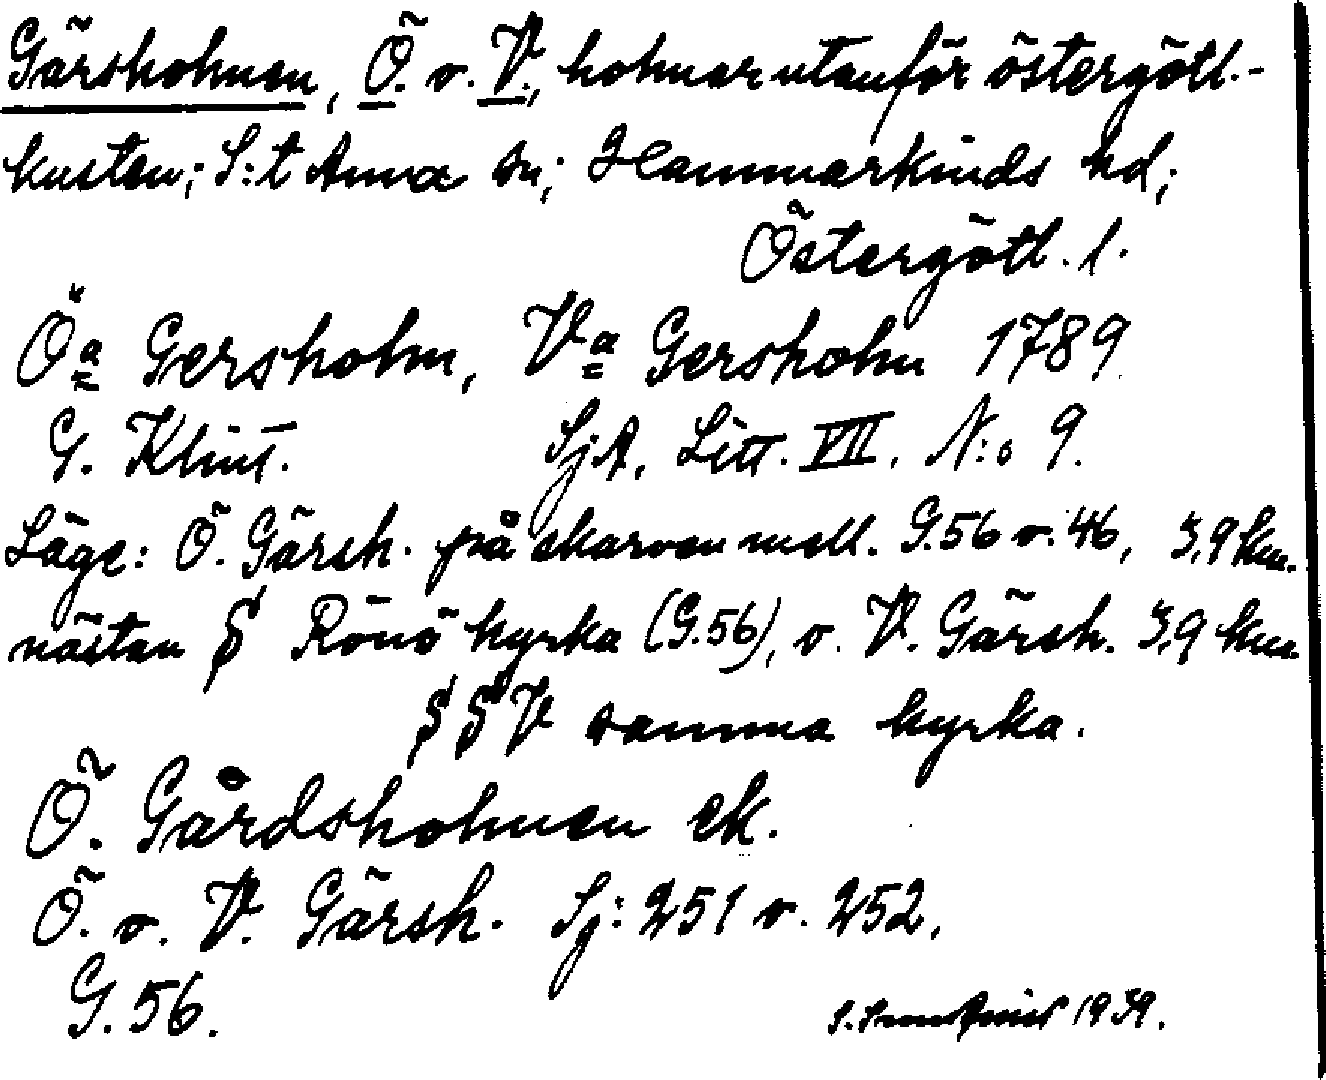 Gärsholmen, Ö. o. V., holmar utanför östergötl.-
kusten; S:t Anna sn; Hammarkinds hd;
Östergötl. l.
Öa Gersholm, Va Gersholm 1789
G. Klint. SjA, Litt. VII. N:o 9.
Läge: Ö. Gärsh. på skarven mell. G.56 o. 46, 3,9 km.
nästan S Rönö kyrka (G.56), o. V. Gärsh. 3,9 km
S S V samma kyrka.
Ö. Gårdsholmen ek.
Ö. o. V. Gärsh. Sj: 251 o. 252.
G. 56.
1939.